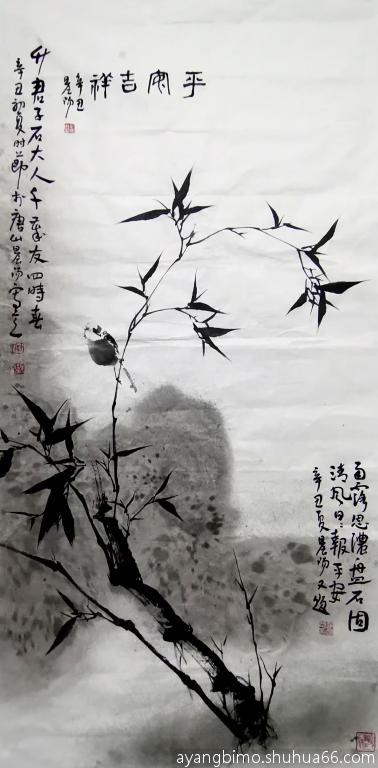 平安吉祥
辛丑
晨阳
竹君子石大人千岁友四時春
辛丑初夏时节於唐山晨阳写之
雨露恩濃盘石固
清风日〻報平安
辛丑夏晨阳又题
ayangbimo.shuhua66.com